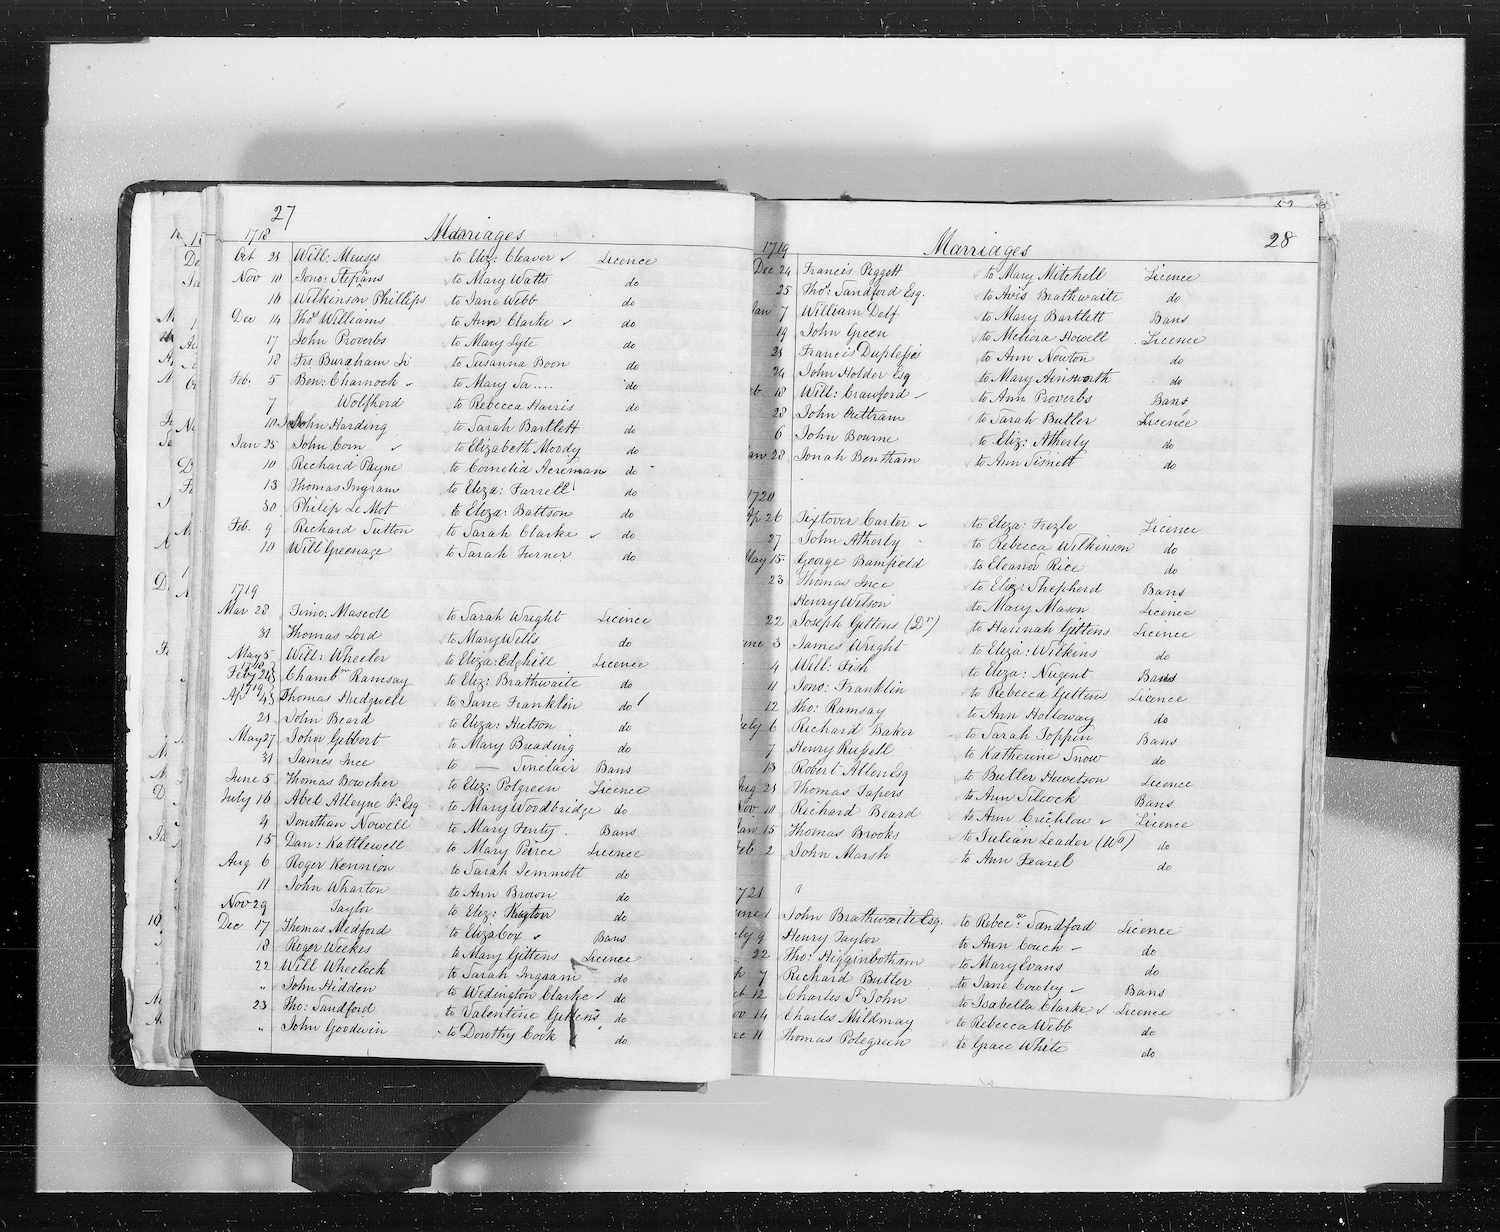 27
1718 Marriages
Oct 21 Will: Meuses to Eliz: Cleaver Licence
Nov 10 Jono: Stephans to Mary Watts do
16 Wilkinson Phillips to Jane Webb do
Dec 14 Thos Williams to Ann Clarke do
17 John Proverbs to Mary Lyte do
18 Frs Burgham Jr to Susanna Boon do
Feb. 5 Ben: Charnock to Mary Sa..... do
7 Wolfherd to Rebecca Harris do
10 John Harding to Sarah Bartlett do
Jan 25 John Corn to Elizabeth Moody do
10 Richard Payne to Cornelid Acreman do
13 Thomas Ingram to Eliza: Farrell do
30 Philip Le Mot to Eliza: Battson do
Feb. 9 Richard Sutton to Sarah Clarke do
10 Will Greenage to Sarah Turner do
1719
Mar 28 Simo: Mascoll to Sarah Wright Licence
31 Thomas Lord to Mary Wells do
May 5 Will: Wheeler to Eliza: Edghill Licence
1718/19 Feby 24 Chambn Ramsay to Eliz: Brathwaite do
Ap 4 Thomas Hidgwell to Jane Franklin do
21 John Beard to Eliza: Hutson do
May 27 John Gibbort to Mary Breading do
31 James Ince to — Sinclair Bans
June 5 Thomas Bowcher to Eliz: Polgreen Licence
July 16 Abel Alleyne Jr Esq to Mary Woodbridge do
4 Jonothan Nowell to Mary Fenty. Bans
15 Dan: Kattlewell to Mary Peirce Licence
Aug 6 Roger Kennion to Sarah Jemmott do
11 John Wharton to Ann Brown do
Nov 29 Taylor to Eliz: Huyton do
Dec 17 Thomas Medford to Eliza Cox Bans
18 Roger Weekes to Mary Gittens Licence
22 Will Wheelock to Sarah Ingram do
" John Hidden to Wedington Clarke do
23 Tho: Sandford to Valentine Gittens do
" John Goodwin to Dorothy Cook do
52
28
1719 Marriages
Dec 24 Francis Piggott to Mary Mitchell Licence
25 Tho: Sandford Esq. to Avis Brathwaite do
Jan 7 William Delf to Mary Bartlett Bans
19 John Green to Meliora Howell Licence
21 Francis Duplessis to Ann Newton do
24 John Holder Esq to Mary Ainsworth do
18 Will: Crawford to Ann Proverbs Bans
23 John Outtram to Sarah Butler Licence
6 John Bourne to Eliz: Atherly do
28 Jonah Bentham to Ann Tisnett do
1720
Ap 26 Sixtover Carter to Eliza: Frizle Licence
27 John Atherly to Rebecca Wilkinson do
May 15 George Bamfield to Eleanor Rice do
23 Thomas Ince to Eliz: Shepherd Bans
Henry Wilson to Mary Mason Licence
22 Joseph Gittens (Dr) to Hannah Gittens Licence
June 3 James Wright to Eliza: Wilkens do
4 Will: Fish to Eliza: Nugent Bans
11 Jono: Franklin to Rebecca Gittens Licence
12 Tho: Ramsay to Ann Holloway do
July 6 Richard Baker to Sarah Toppin Bans
7 Henry Russell to Katherine Snow do
13 Robert Allen Esq to Butler Hewetson Licence
Aug 21 Thomas Sapers to Ann Silcock Bans
Nov 10 Richard Beard to Ann Crichlow Licence
Jan 15 Thomas Brooks to Julian Leader (Wd) do
Feb 2 John Marsh to Ann Fearel do
1721
June 1 John Brathwaite Esq. to Rebeca Sandford Licence
July 9 Henry Taylor to Ann Couch do
22 Tho: Higginbotham to Mary Evans do
7 Richard Butler to Jane Cowley Bans
Oct 12 Charles St John to Isabella Clarke Licence
Nov 14 Charles Mildmay to Rebecca Webb do
Dec 11 Thomas Polegreen to Grace White do